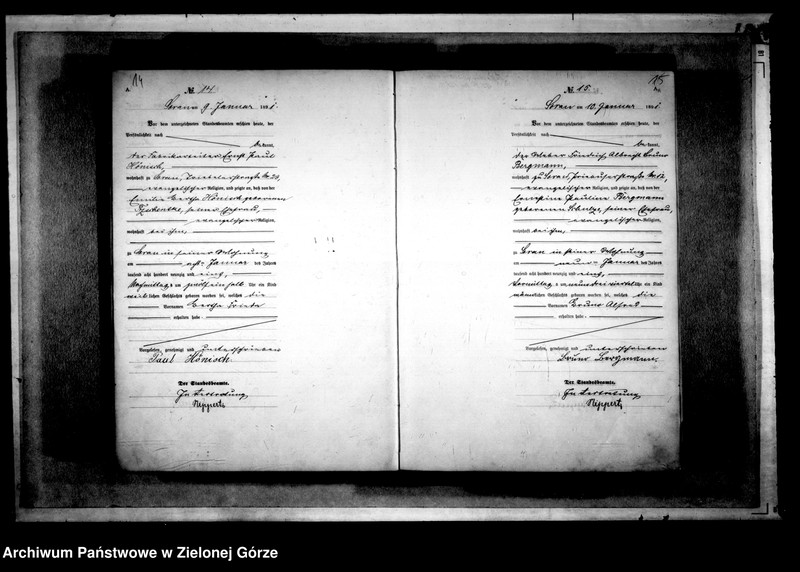 14
A.
№ 14
Sorau am 9. Januar 1921.
Vor dem unterzeichneten Standesbeamten erschien heute, der
Persönlichkeit nach
bekannt,
der Fabrikarbeiter Ernst Paul
Hönisch,
wohnhaft zu Sorau, № 20,
evangelischer Religion, und zeigte an, daß von der
Emilie Bertha Hönisch geborenen
seiner Ehefrau,
evangelischer Religion,
wohnhaft bei ihm,
zu Sorau in seiner Wohnung
am acht Januar des Jahres
tausend acht hundert und eins,
mittags um zwölf einhalb Uhr ein Kind
weiblichen Geschlechts geboren worden sei, welches die
Vornamen Bertha Frieda
erhalten habe
Vorgelesen, genehmigt und unterschrieben
Paul Hönisch.
Der Standesbeamte.
In Vertretung,
Neppert
15
A.
№ 15.
Sorau am 10. Januar 1921.
Vor dem unterzeichneten Standesbeamten erschien heute, der
Persönlichkeit nach
bekannt,
der Weber Friedrich Albrecht Bruno
Bergmann,
wohnhaft zu Sorau, № 12,
evangelischer Religion, und zeigte an, daß von der
Pauline Bergmann
geborenen Schulze, seiner Ehefrau,
evangelischer Religion,
wohnhaft bei ihm,
zu Sorau in seiner Wohnung
am neun Januar des Jahres
tausend acht hundert und eins,
Vormittags um neun dreiviertel Uhr ein Kind
männlichen Geschlechts geboren worden sei, welches die
Vornamen Bruno Alfred
erhalten habe
Vorgelesen, genehmigt und unterschrieben
Bruno Bergmann.
Der Standesbeamte.
In Vertretung,
Neppert
Archiwum Państwowe w Zielonej Górze